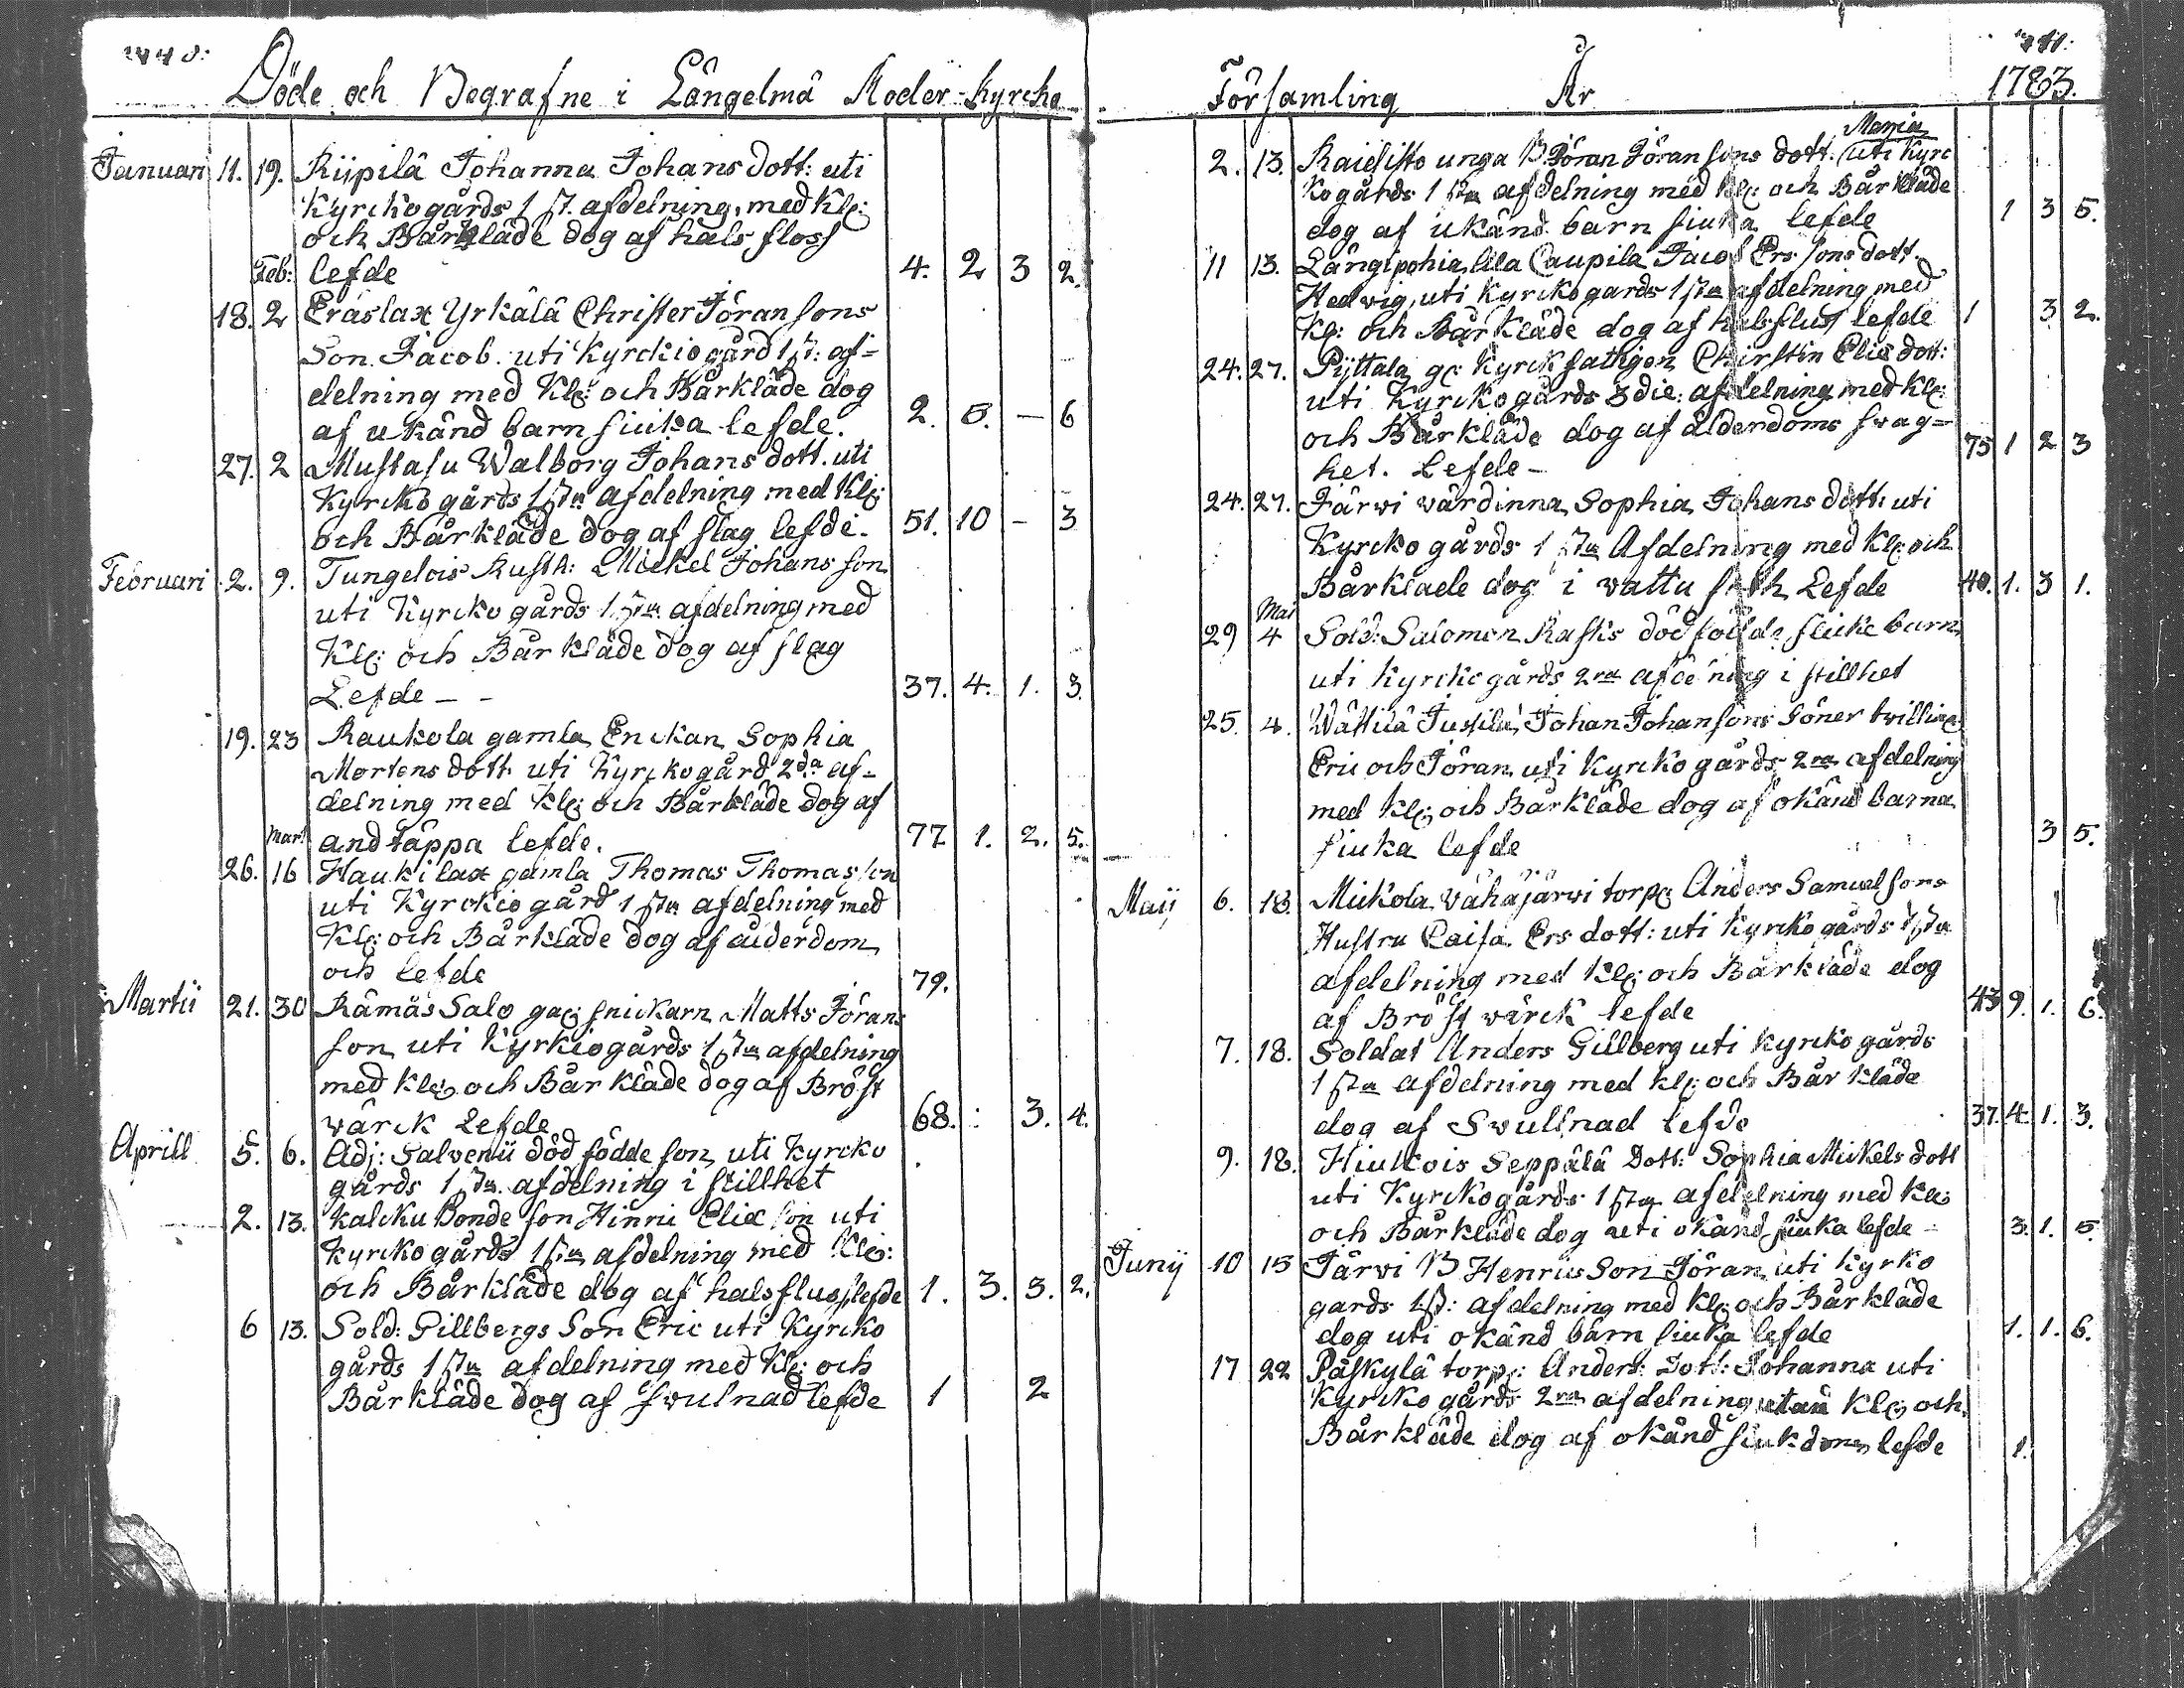 Döde och Begrafne i Längelmä Moder-Kyrcko
Januari 11. 19. Riipilä Johanna Johans dott: uti
Kyrckogårds 1 st. afdelning, med Kl:
och Bårkläde dog af hals floss
Feb: lefde 4. 2 3 2.
18. 2 Eräslax Yrkälä Christer Jöransons
Son Jacob. uti Kyrckiogård 1 st: af-
delning med Kl: och Bårkläde dog
af ukänd barn siuka lefde. 2. 5. - 6
27. 2 Mustasu Walborg Johans dott. uti
Kyrcko gårds 1sta afdelning med Kl:
och Bårkläde dog af slag lefde. 51. 10 - 3
Februari 2. 9. Tungelois Rusth: Mickel Johans son
uti Kyrcko gårds 1sta afdelning med
Kl: och Bårkläde dog af slag
Lefde - - 37. 4. 1. 3.
19. 23 Raukola gamla Enckan Sophia
Mortens dott. uti Kyrckogård 2da af-
delning med Kl: och Bårkläde dog af
Mart andtäppa lefde. 77 1. 2. 5.
26. 16 Haukilax gamla Thomas Thomasson
uti Kyrckiogård 1sta afdelning med
Kl: och Bårkläde dog af ålderdom
och lefde 79.
Martii 21. 30 Rämäs Salo ga: snickarn Matts Jörans
son uti Kyrkiogårds 1sta afdelning
med Kl: och Bårkläde dog af Bröst
wärck Lefde 68. : 3. 4.
Aprill 5. 6. Adj: Salvenii död födde son uti Kyrcko
gårds 1sta. afdelning i stillhet
2. 13. Kalcku Bonde son Hinric Elix son uti
Kyrcko gårds 1sta afdelning med Kl:
och Bårkläde dog af halsfluss lefde 1. 3. 3. 2.
6 13. Sold: Gillbergs Son Eric uti Kyrcko
gårds 1sta afdelning med Kl: och
Bårkläde dog af Swulnad lefde 1 2
Församling År 1783.
Maria
2. 13. unga B. Jöran Jöransons dott. uti Kyrc
kogårds 1sta afdelning med Kl: och Bårkläde
dog af ukänd barn siuka lefde 1 3 5.
11 13. Längipohia Caupila Jacob Ers sons dott.
Hedwig, uti Kyrckogårds 1sta afdelning med
Kl: och Bårkläde dog af halsfluss lefde 1 3 2.
24. 27. Pyttala ga: Kyrckfattigon Christin Elis dott:
uti Kyrcko gårds 3die. afdelning med Kl:
och Bårkläde dog af ålderdoms swag-
het. Lefde - 75 1 2 3
24. 27. Järwi wärdinna Sophia Johans dott: uti
Kyrcko gårds 1sta Afdelning med Kl: och
Bårkläde dog i wattu Lefde 40. 1. 3 1.
Mai
29 4 Sold: Salomon Rasks död födde flicke barn
uti Kyrcko gårds 2ra afdelning i stillhet
25. 4. Jussila Johan Johansons Söner twilling
Eric och Jöran uti Kyrcko gårds 2ra afdelning
med Kl: och Bårkläde dog af okänd barna
siuka lefde 3 5.
Maij 6. 18. Mickola wähäjärwi torp: Anders Samuelsons
Hustru Caisa Ers dott: uti Kyrcko gårds 1sta
afdelning med Kl: och Bårkläde dog
af Bröst wärck lefde 43 9. 1. 6.
7. 18. Soldat Anders Gillberg uti Kyrcko gårds
1sta afdelning med Kl: och Bårkläde
dog af Swullnad lefde 37. 4. 1. 3.
9. 18. Hiukois Seppälä Dott: Sophia Mickels dott
uti Kyrckogårds 1sta afdelning med Kl:
och Bårkläde dog uti okänd siuka lefde - 3. 1. 5.
Junij 10 15 Järwi B Henrics Son Jöran uti Kyrko
gards 1st: afdelning med Kl: och Bårkläde
dog uti okänd barn siuka lefde 1. 1. 6.
17 22 Påskylä torp: Anders: Dott: Johanna uti
Kyrcko gårds 2ra afdelning utan Kl: och
Bårkläde dog af okänd siukdom lefde 1.